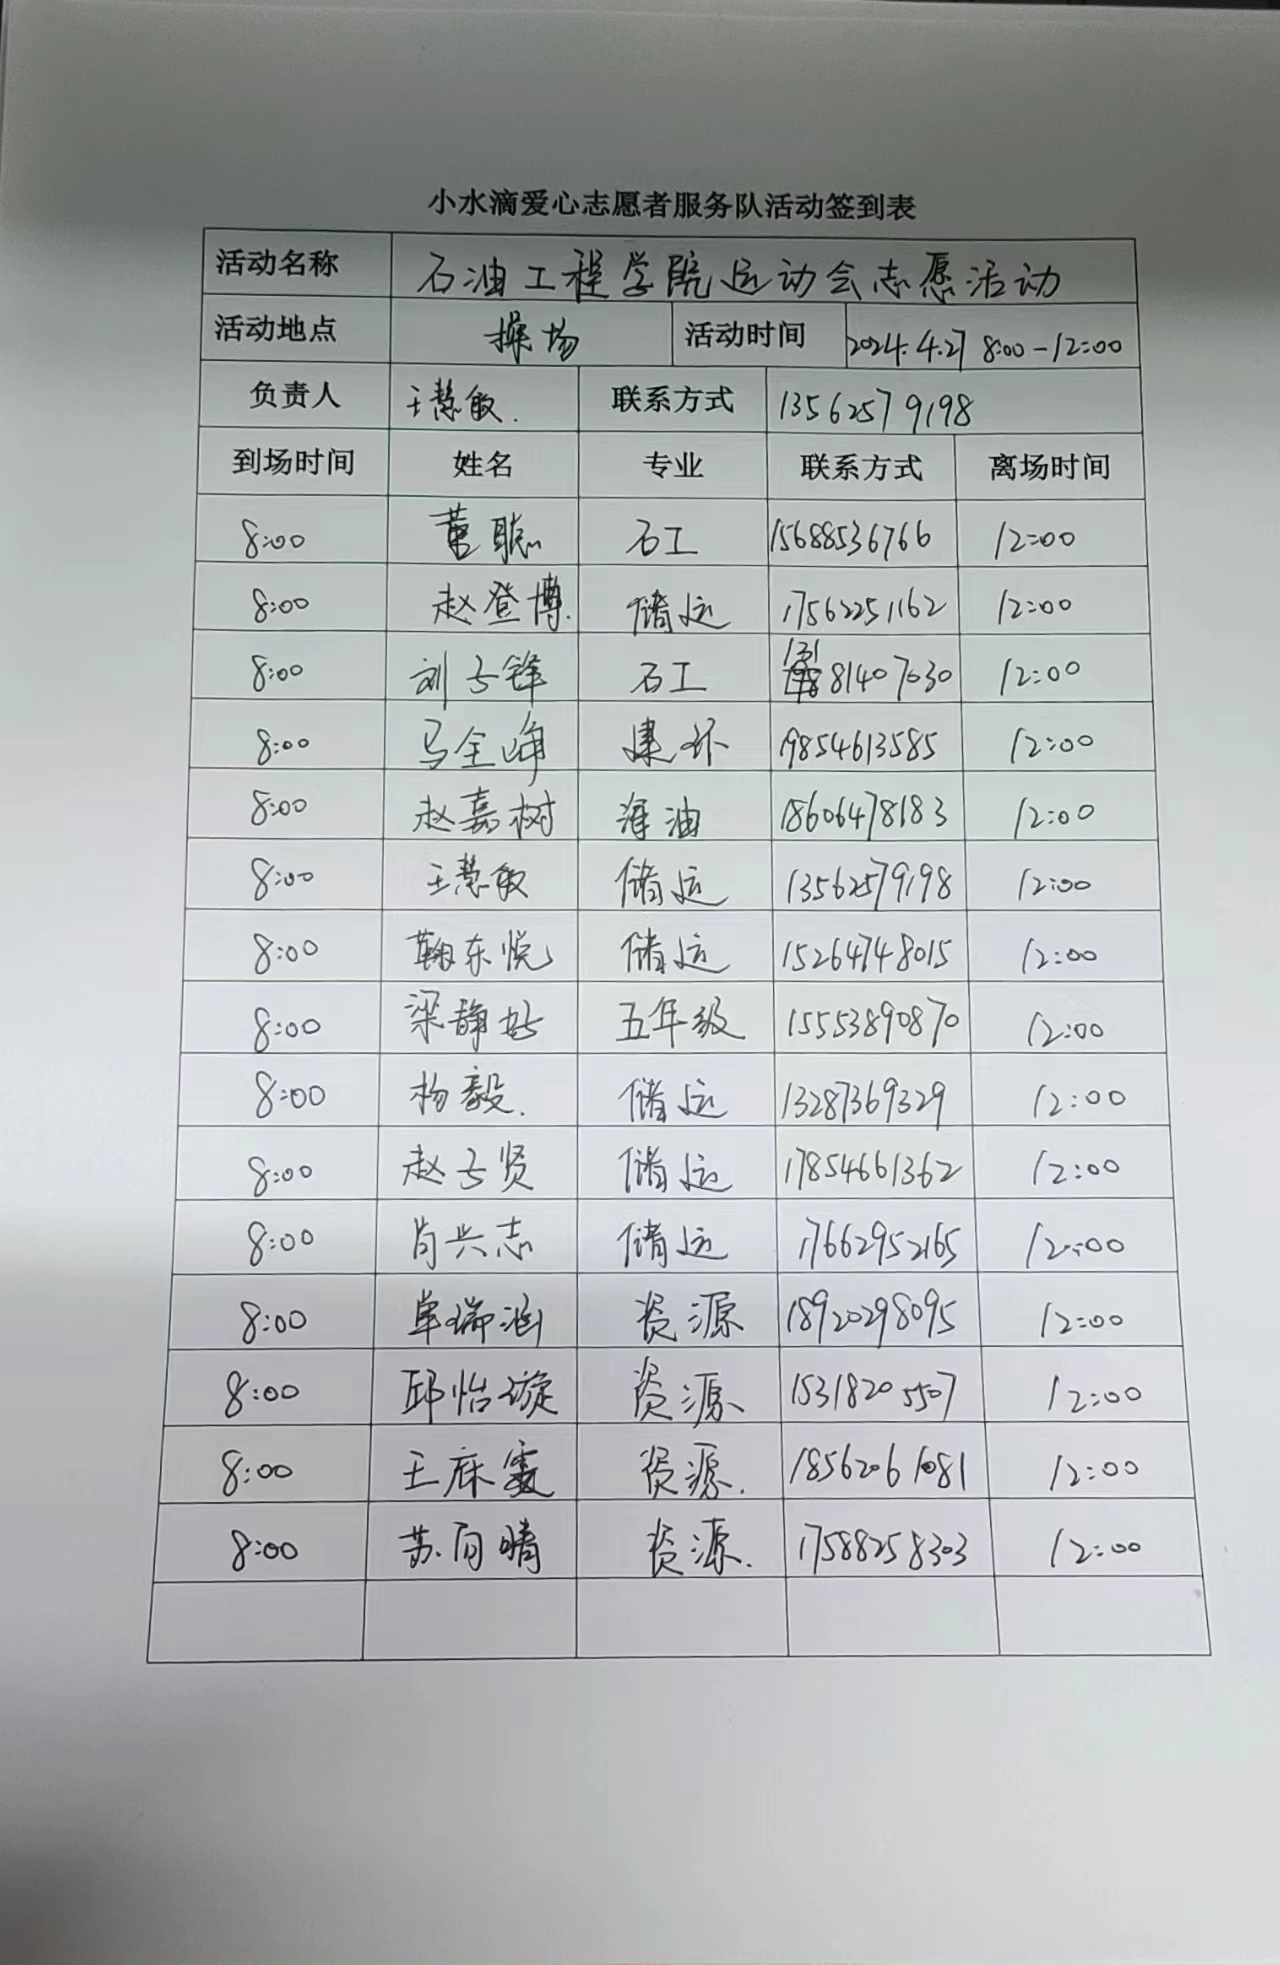 小水滴爱心志愿者服务队活动签到表
活动名称 石油工程学院运动会志愿活动
活动地点 操场 活动时间 2024.4.27 8:00-12:00
负责人 王慧敏. 联系方式 13562579198
到场时间 姓名 专业 联系方式 离场时间
8:00 董聪 石工 15688536766 12:00
8:00 赵登博. 储运 17562251162 12:00
8:00 刘子锋 石工 13181407030 12:00
8:00 马全峥 建环 19854613585 12:00
8:00 赵嘉树 海油 18606478183 12:00
8:00 王慧敏 储运 13562579198 12:00
8:00 鞠东悦 储运 15264748015 12:00
8:00 梁静好 五年级 15553890870 12:00
8:00 杨毅. 储运 13287369329 12:00
8:00 赵子贤 储运 17854661362 12:00
8:00 肖兴志 储运 17662952165 12:00
8:00 单瑞涵 资源 18920298095 12:00
8:00 邱怡漩 资源 15318205507 12:00
8:00 王麻雯 资源. 18562061081 12:00
8:00 苏向晴 资源. 17588258303 12:00